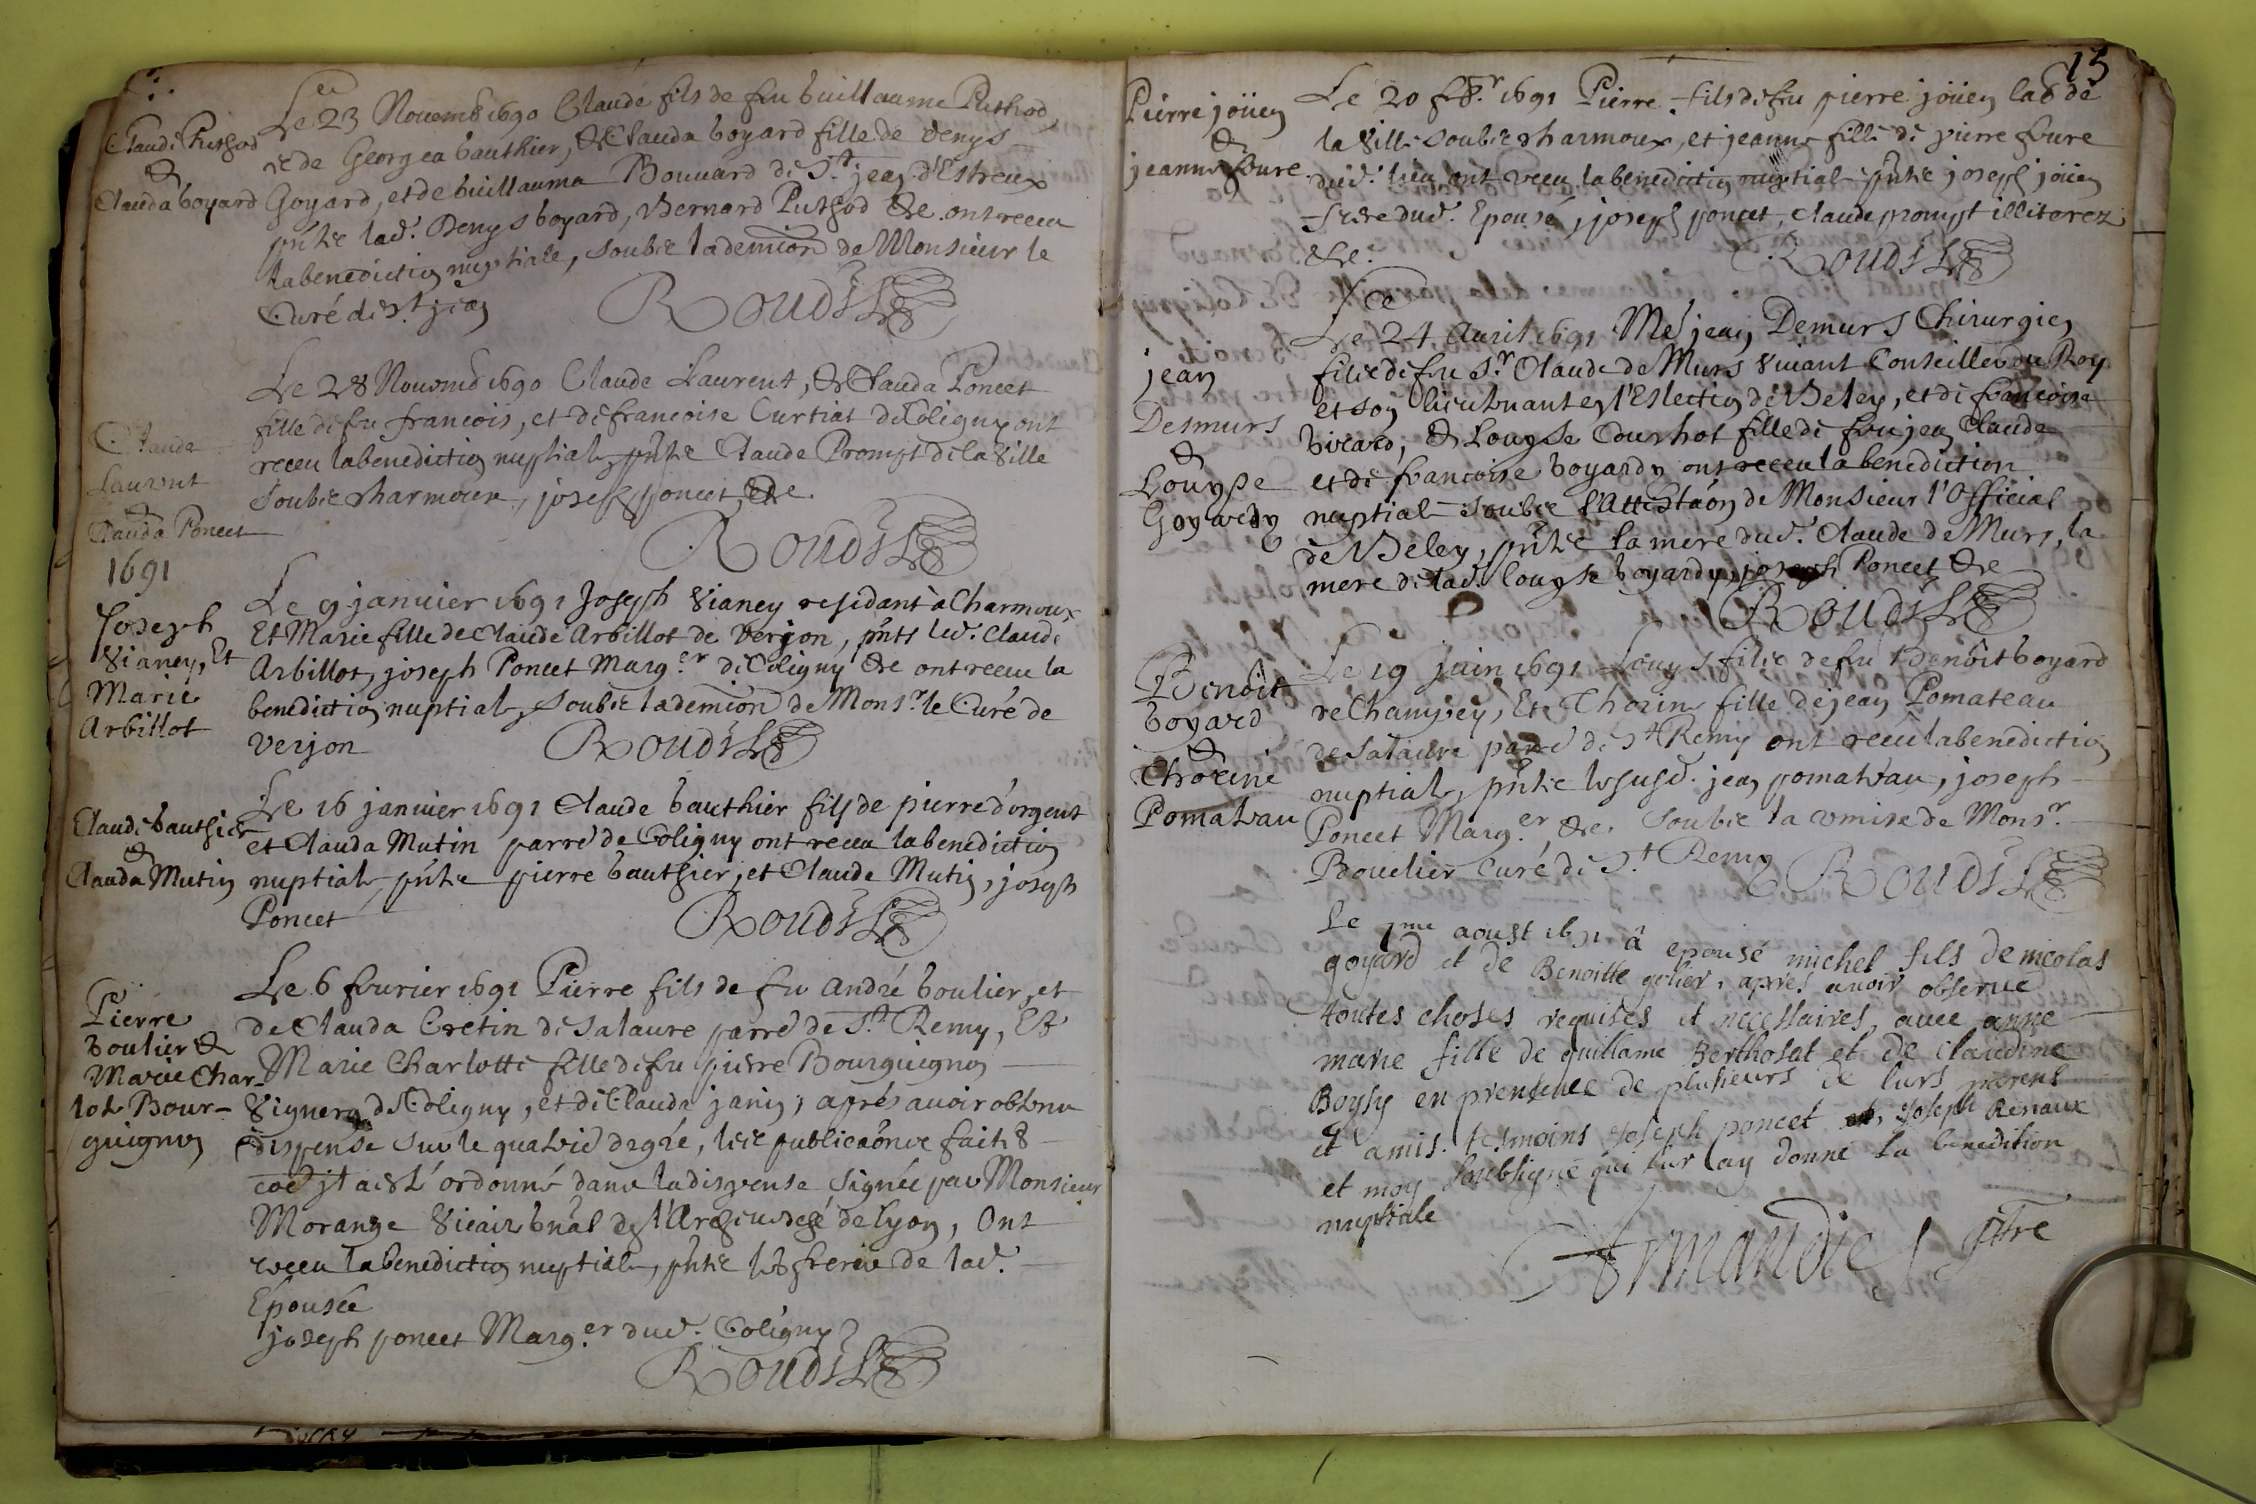 Claude Puthod
&
Clauda Goyard
Le 23 Novemb 1690 Claude fils de feu Guillaume Puthod,
et de Georgea Gauthier, & Clauda Goyard fille de Denys
Goyard, et de Guillauma Bouvard de St jean d'Estreux
pntz lad. Denys Goyard, Bernard Puthod &c. ont receu
la benedictiõ nuptiale, soubz la demion de Monsieur le
Curé de St jeã
Roudil
Claude
Laurent
&
Clauda Poncet
Le 28 Novemb 1690 Claude Laurent, & Clauda Poncet
fille de feu francois, et de francoise Curtiat de Coligny ont
receu la benedictiõ nuptiale, pntz Claude Prompt de la Ville
soubz charmoux, joseph poncet, &c.
Roudil
1691
Joseph
Vianey, Et
Marie
Arbillot
Le 9 janvier 1691 Joseph Vianey residant à Charmoux
Et Marie fille de Claude Arbillot de Verjon, pnts led. Claude
Arbillot, joseph Poncet Marg.er de Coligny &c ont receu la
benedictiõ nuptiale, soubz la demion de Monsr. le Curé de
Verjon
Roudil
Claude Gauthier
&
Clauda Mutin
Le 16 janvier 1691 Claude Gauthier fils de pierre d'orgent
et Clauda Mutin parre de Coligny ont receu la benedictiõ
nuptiale, pntz pierre Gauthier, et Claude Mutin, joseph
Poncet
Roudil
Pierre
Goulier &
Marie Char-
lote Bour-
guignon
Le 6 fevrier 1691 Pierre fils de feu André Goulier, et
de Clauda Cretin de Salaure parre de St. Remy, Et
Marie Charlotte fille de feu pierre Bourguignon
Vigneron de Coligny, et de Clauda janin, aprés avoir obtenu
dispense sur le quatrie degré, les publicaõns faites
coe jl a esté ordonné dans la dispense signée par Monsieur
Morange Vicaire gnãl de l'Archevesché de Lyon, Ont
receu la benedictiõ nuptiale, pntz les freres de lad.
Epousée
joseph poncet Marg.er dud. Coligny
Roudil
15
Pierre joüen
&
jeanne fevre.
Le 20 fbr. 1691 Pierre fils de feu pierre joüen lab de
la Ville soubz charmoux, et jeanne fille de pierre fevre
dud. lieu ont receu la benedictiõ nuptiale pntz joseph joüen
frere dud. Epousé, joseph poncet, Claude prompt illiterez
&c.
Roudil
jean
Desmurs
&
Louyse
Goyardy
Le 24 Avril 1691 Me jean Demurs Chirurgien
filz de feu Sr. Claude de Murs Vivant Conseiller du Roy
et son lieutenant en l'Eslection de Beley, et de francoise
Girard, & Louyse Courhot fille de feu jean Claude
et de francoise Goyardy ont receu la benediction
nuptiale soubz l'Attestãon de Monsieur l'Official
de Beley, pntz la mere dud. Claude de Murs, la
mere de lad. Louyse Goyardy, joseph Poncet &c
Roudil
Benoit
Goyard
&
Thorine
Pomateau
Le 19 juin 1691 Louys filz de feu Benoit Goyard
de Champey, Et Thorine fille de jean Pomateau
de Salaure parre de St Remy ont receu la benedictiõ
nuptiale, pntz le susd. jean pomateau, joseph
Poncet Marg.er &c. soubz la remise de Monsr.
Bouclier Curé de St. Remy
Roudil
Le 7me aoust 1691 â epousé michel fils de nicolas
goyard et de Benoitte golier, apres avoir observé
toutes choses requises et necessaires avec anne
marie fille de guillame Bertholat et de Claudine
Boysy en presence de plusieurs de lurs parens
et amis. tesmoins joseph poncet joseph Renaux
et moy soubsigné qui lur ay donné la benedition
nuptiale
Armandie ptre